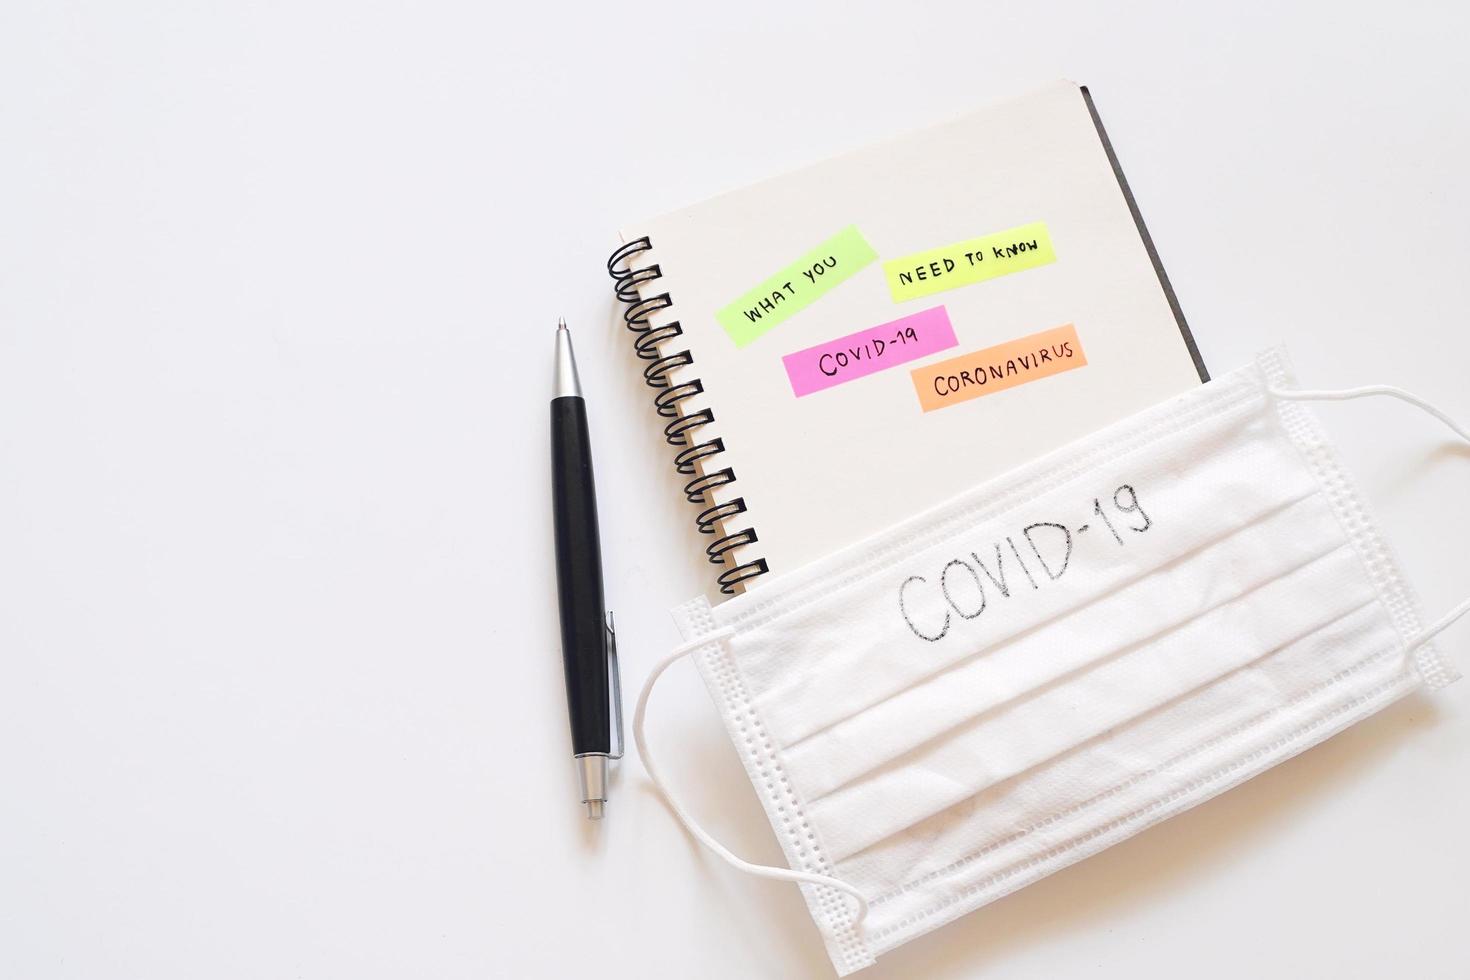 WHAT YOU
NEED TO KNOW
COVID-19
CORONAVIRUS
COVID-19